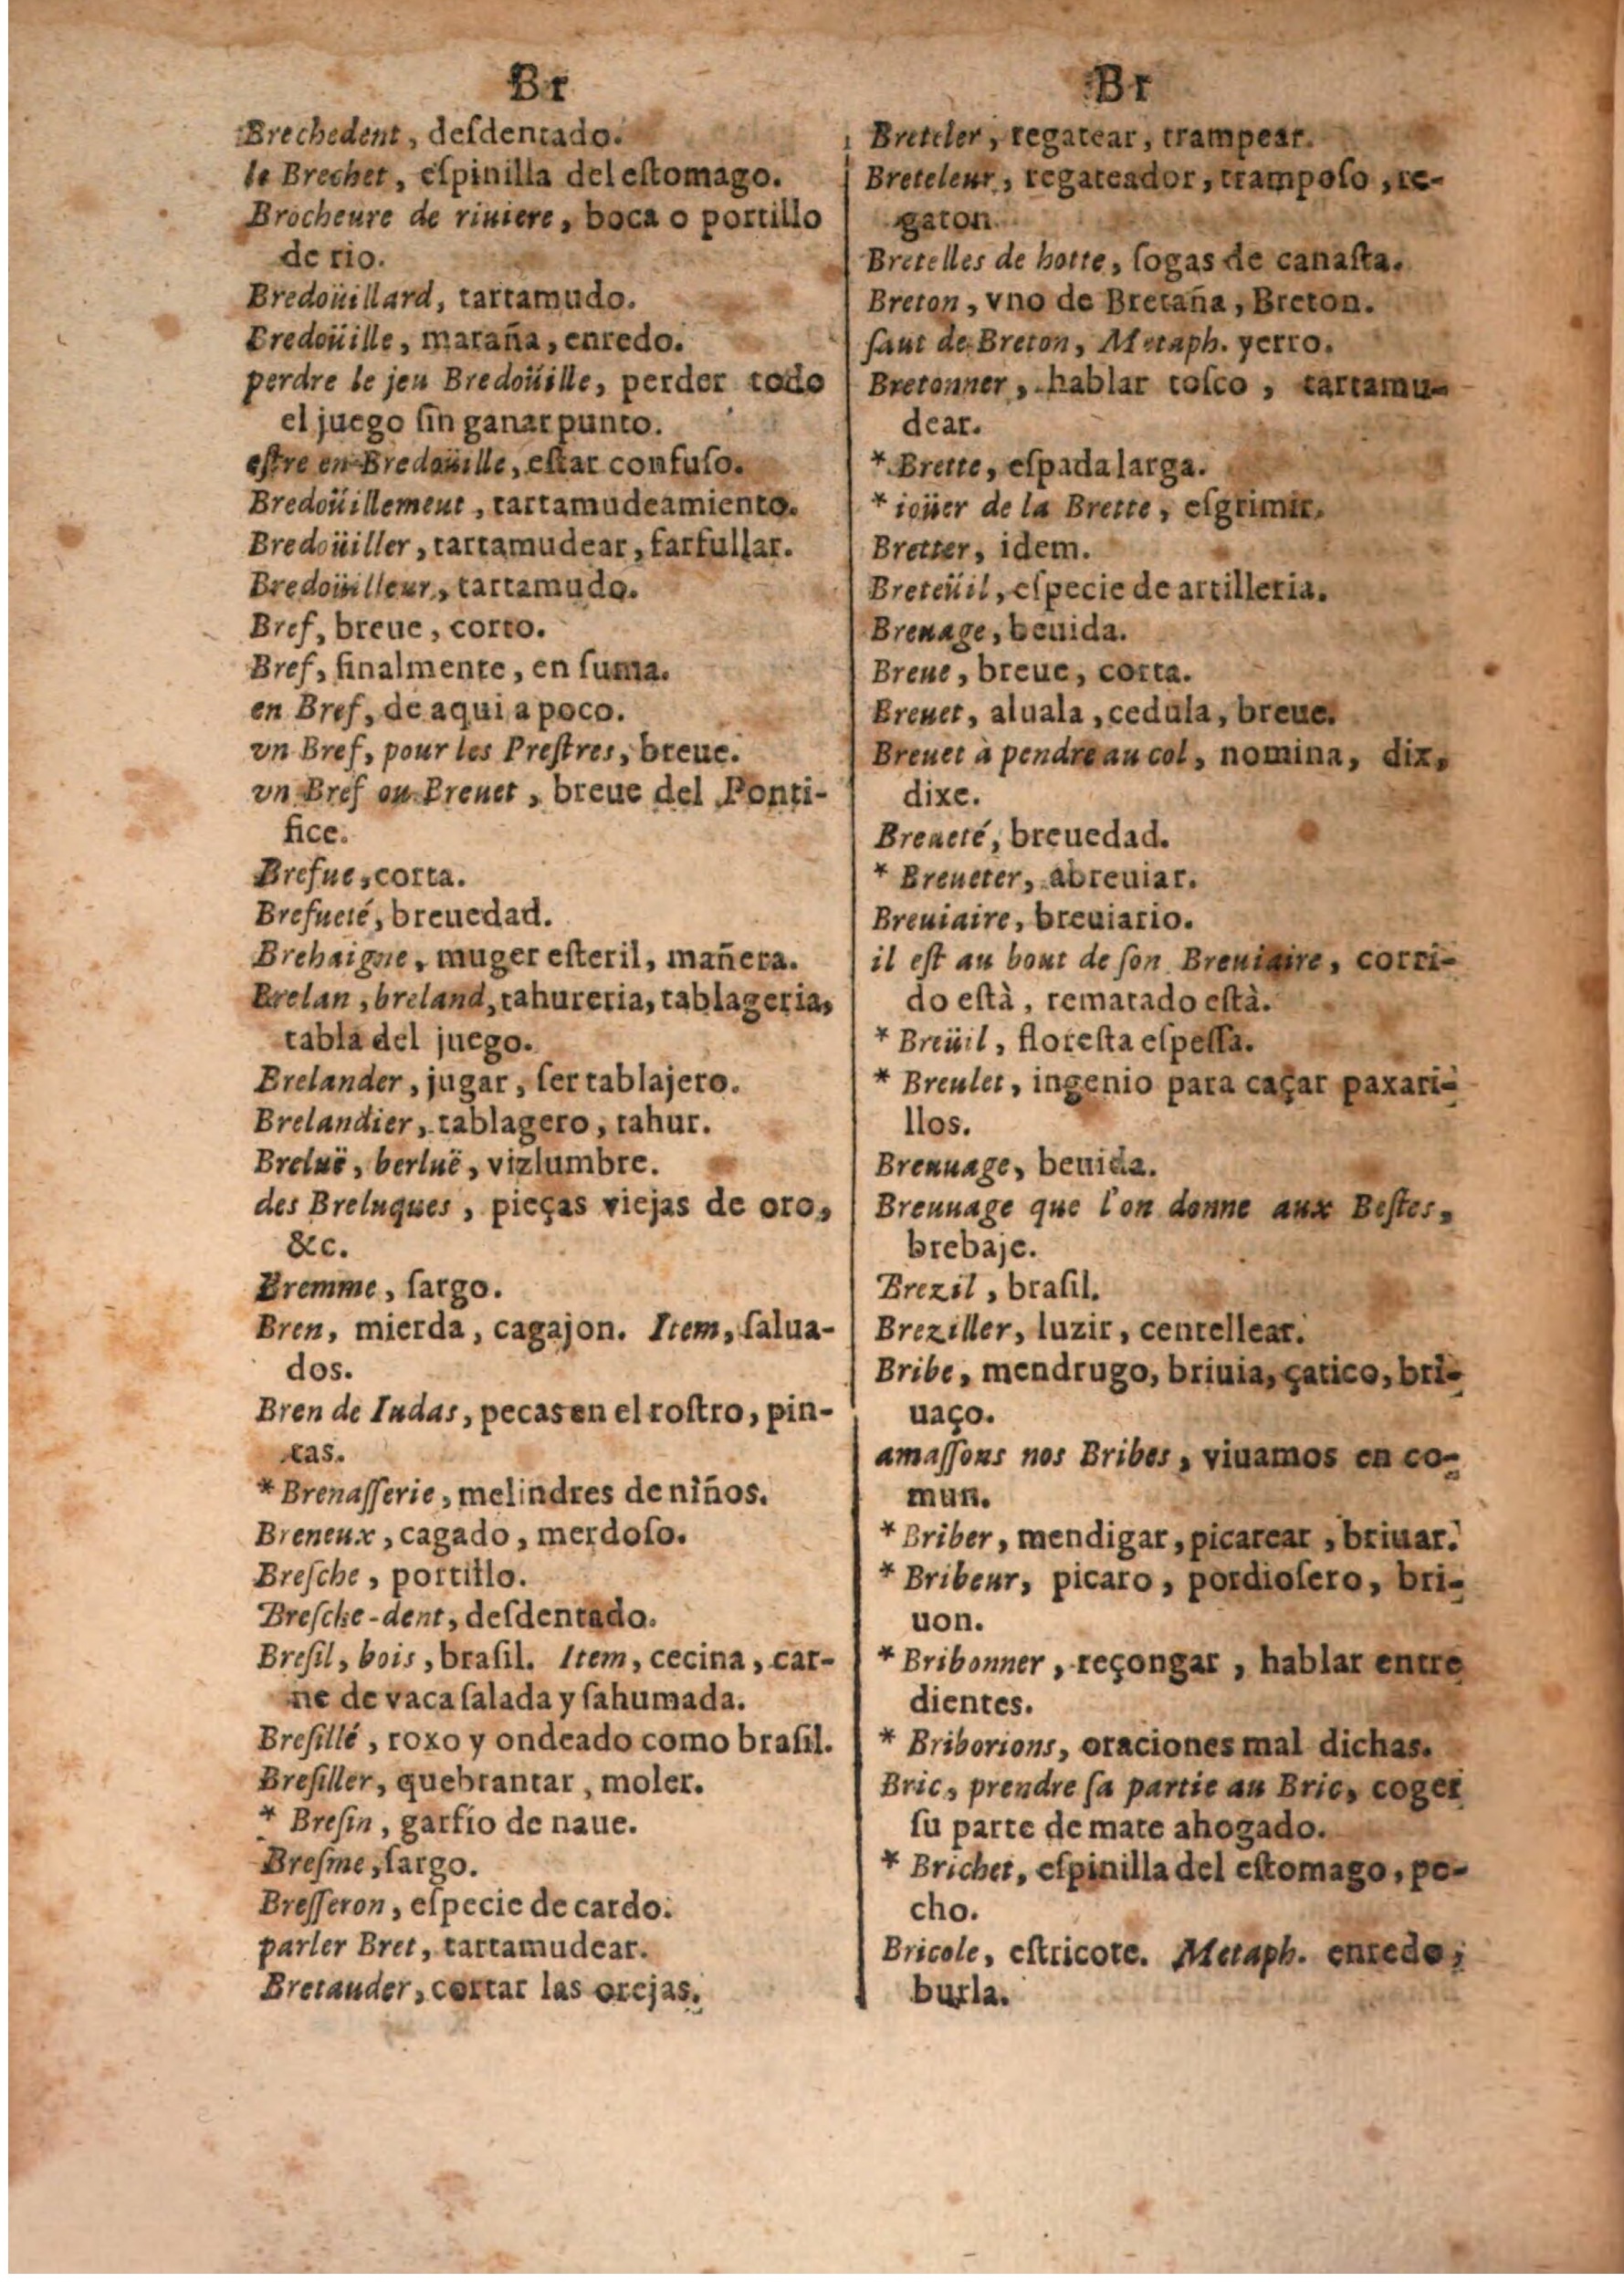 Br
Brechedent, deſdentado.
le Brechet, eſpinilla del eſtomago.
Brocheure de riuiere, boca o portillo
de rio.
Bredoüillard, tartamudo.
Bredoüille, maraña, enredo.
perdre le jeu Bredoüille, perder todo
el juego ſin ganar punto.
eſtre en Bredoüille, eſtar confuſo.
Bredoüillement, tartamudeamiento.
Bredoüiller, tartamudear, farfullar.
Bredoüilleur, tartamudo.
Bref, breue, corto.
Bref, finalmente, en ſuma.
en Bref, de aqui a poco.
vn Bref, pour les Preſtres, breue.
vn Bref ou Breuet, breue del Ponti-
fice.
Brefue, corta.
Brefueté, breuedad.
Brehaigne, muger eſteril, mañera.
Brelan, breland, tahureria, tablageria,
tabla del juego.
Brelander, jugar, ſer tablajero.
Brelandier, tablagero, tahur.
Breluë, berluë, vizlumbre.
des Breluques, pieças viejas de oro,
&c.
Bremme, ſargo.
Bren, mierda, cagajon. Item, ſalua-
dos.
Bren de Iudas, pecas en el roſtro, pin-
tas.
* Brenaſſerie, melindres de niños.
Breneux, cagado, merdoſo.
Breſche, portillo.
Breſche-dent, deſdentado.
Breſil, bois, braſil. Item, cecina, car-
ne de vaca ſalada y ſahumada.
Breſillé, roxo y ondeado como braſil.
Breſiller, quebrantar, moler.
* Breſin, garfio de naue.
Breſme, ſargo.
Breſſeron, eſpecie de cardo.
parler Bret, tartamudear.
Bretauder, cortar las orejas.
Br
Breteler, regatear, trampear.
Breteleur, regateador, trampoſo, re-
gaton.
Bretelles de hotte, ſogas de canaſta.
Breton, vno de Bretaña, Breton.
ſaut de Breton, Metaph. yerro.
Bretonner, hablar toſco, tartamu-
dear.
* Brette, eſpada larga.
* ioüer de la Brette, eſgrimir.
Bretter, idem.
Breteüil, eſpecie de artilleria.
Breuage, beuida.
Breue, breue, corta.
Breuet, aluala, cedula, breue.
Breuet à pendre au col, nomina, dix,
dixe.
Breueté, breuedad.
* Breueter, abreuiar.
Breuiaire, breuiario.
il eſt au bout de ſon Breuiaire, corri-
do eſtà, rematado eſtà.
* Breüil, floreſta eſpeſſa.
* Breulet, ingenio para caçar paxari-
llos.
Breuuage, beuida.
Breuuage que l'on donne aux Beſtes,
brebaje.
Brezil, braſil.
Breziller, luzir, centellear.
Bribe, mendrugo, briuia, çatico, bri-
uaço.
amaſſons nos Bribes, viuamos en co-
mun.
* Briber, mendigar, picarear, briuar.
* Bribeur, picaro, pordioſero, bri-
uon.
* Bribonner, reçongar, hablar entre
dientes.
* Briborions, oraciones mal dichas.
Bric, prendre ſa partie au Bric, coger
ſu parte de mate ahogado.
* Brichet, eſpinilla del eſtomago, pe-
cho.
Bricole, eſtricote. Metaph. enredo,
burla.